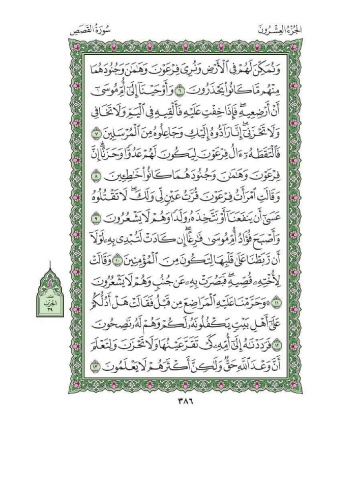 الجزء العشرون
سورة القصص
وَنُمَكِّنَ لَهُمْ فِي ٱلْأَرْضِ وَنُرِيَ فِرْعَوْنَ وَهَٰمَٰنَ وَجُنُودَهُمَا
مِنْهُم مَّا كَانُوا۟ يَحْذَرُونَ ٦ وَأَوْحَيْنَآ إِلَىٰٓ أُمِّ مُوسَىٰٓ
أَنْ أَرْضِعِيهِ فَإِذَا خِفْتِ عَلَيْهِ فَأَلْقِيهِ فِي ٱلْيَمِّ وَلَا تَخَافِي
وَلَا تَحْزَنِيٓ إِنَّا رَآدُّوهُ إِلَيْكِ وَجَاعِلُوهُ مِنَ ٱلْمُرْسَلِينَ ٧
فَٱلْتَقَطَهُۥٓ ءَالُ فِرْعَوْنَ لِيَكُونَ لَهُمْ عَدُوًّا وَحَزَنًا إِنَّ
فِرْعَوْنَ وَهَٰمَٰنَ وَجُنُودَهُمَا كَانُوا۟ خَٰطِـِٔينَ ٨
وَقَالَتِ ٱمْرَأَتُ فِرْعَوْنَ قُرَّتُ عَيْنٍ لِّي وَلَكَ لَا تَقْتُلُوهُ
عَسَىٰٓ أَن يَنفَعَنَآ أَوْ نَتَّخِذَهُۥ وَلَدًا وَهُمْ لَا يَشْعُرُونَ ٩
وَأَصْبَحَ فُؤَادُ أُمِّ مُوسَىٰ فَٰرِغًا إِن كَادَتْ لَتُبْدِي بِهِۦ لَوْلَآ
أَن رَّبَطْنَا عَلَىٰ قَلْبِهَا لِتَكُونَ مِنَ ٱلْمُؤْمِنِينَ ١٠ وَقَالَتْ
لِأُخْتِهِۦ قُصِّيهِ فَبَصُرَتْ بِهِۦ عَن جُنُبٍ وَهُمْ لَا يَشْعُرُونَ
١١ وَحَرَّمْنَا عَلَيْهِ ٱلْمَرَاضِعَ مِن قَبْلُ فَقَالَتْ هَلْ أَدُلُّكُمْ
عَلَىٰٓ أَهْلِ بَيْتٍ يَكْفُلُونَهُۥ لَكُمْ وَهُمْ لَهُۥ نَٰصِحُونَ
١٢ فَرَدَدْنَٰهُ إِلَىٰٓ أُمِّهِۦ كَيْ تَقَرَّ عَيْنُهَا وَلَا تَحْزَنَ وَلِتَعْلَمَ
أَنَّ وَعْدَ ٱللَّهِ حَقٌّ وَلَٰكِنَّ أَكْثَرَهُمْ لَا يَعْلَمُونَ ١٣
نصف
الحزب
٣٩
٣٨٦